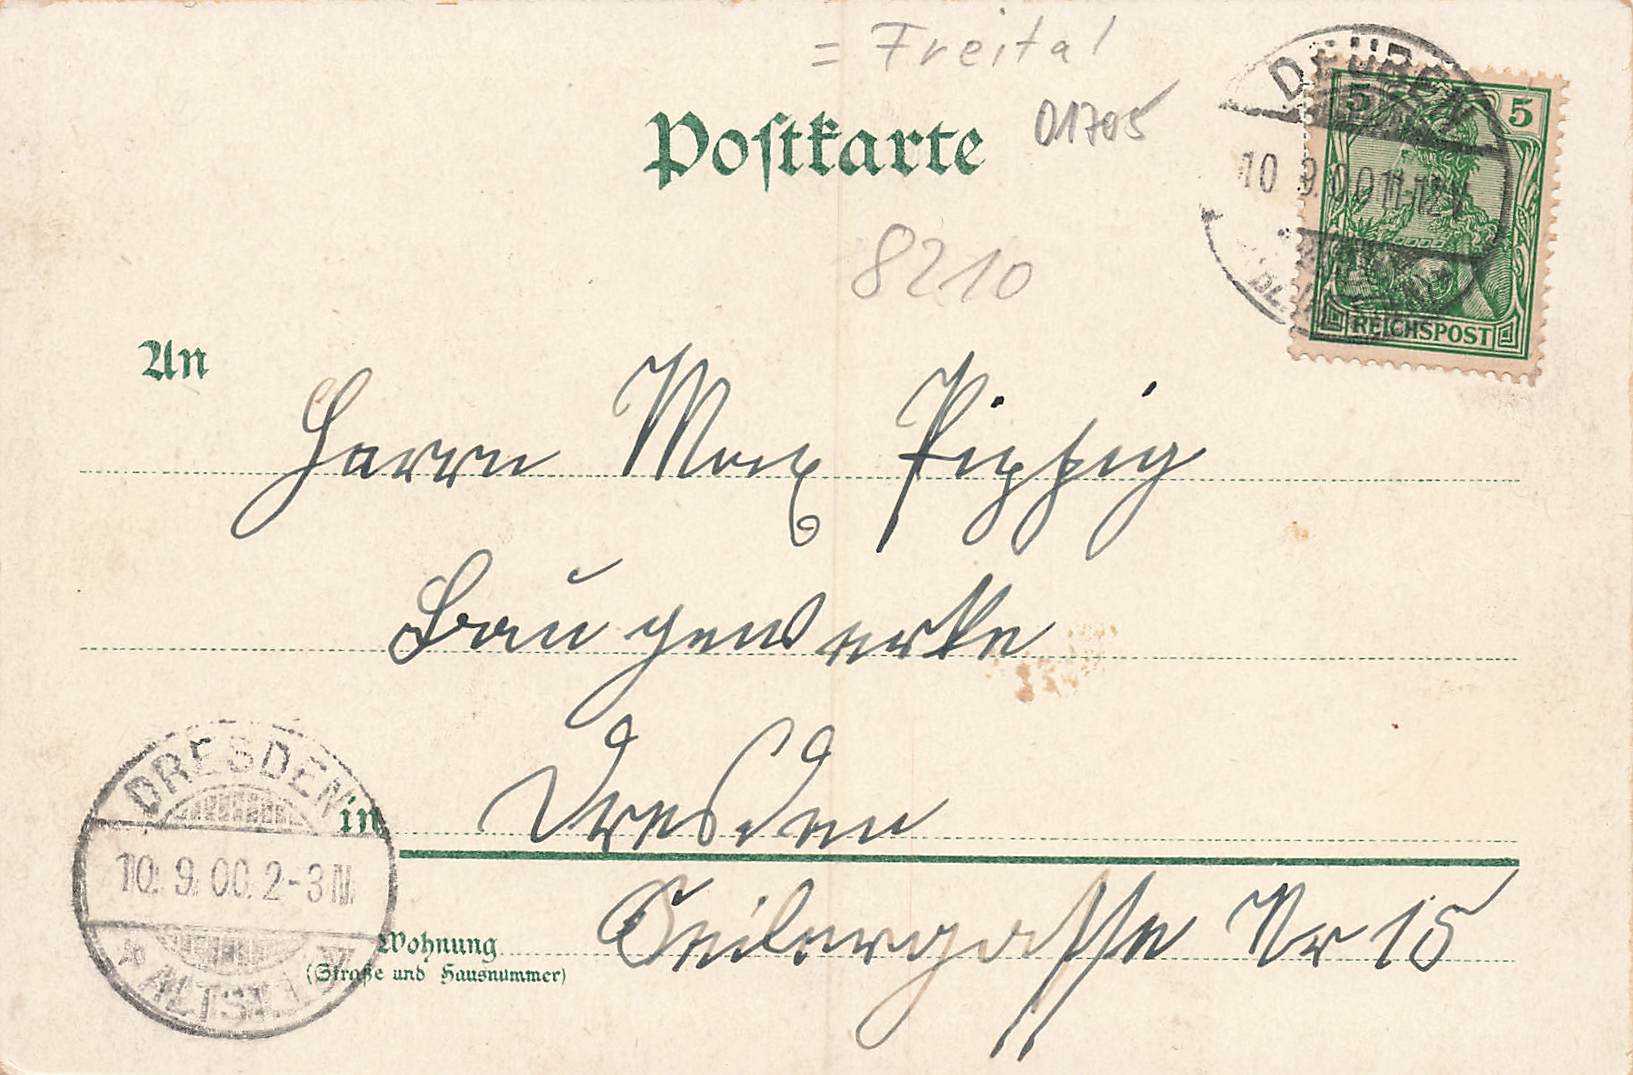 = Freital
Postkarte
01705
8210
DEUBEN
10 9.00 11-12 V
5 5
REICHSPOST
An
Herrn Max Pipzig
Baugewerke
DRESDEN
in Dresden
10. 9. 00. 2-3 N
Wohnung
(Straße und Hausnummer)
Seilergasse Nr 15
ALTST.